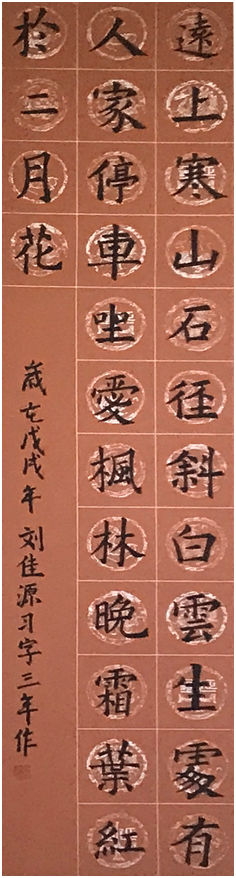 遠上寒山石徑斜白雲生處有
人家停車坐愛楓林晚霜葉紅
於二月花
歲在戊戌年刘佳源习字三年作